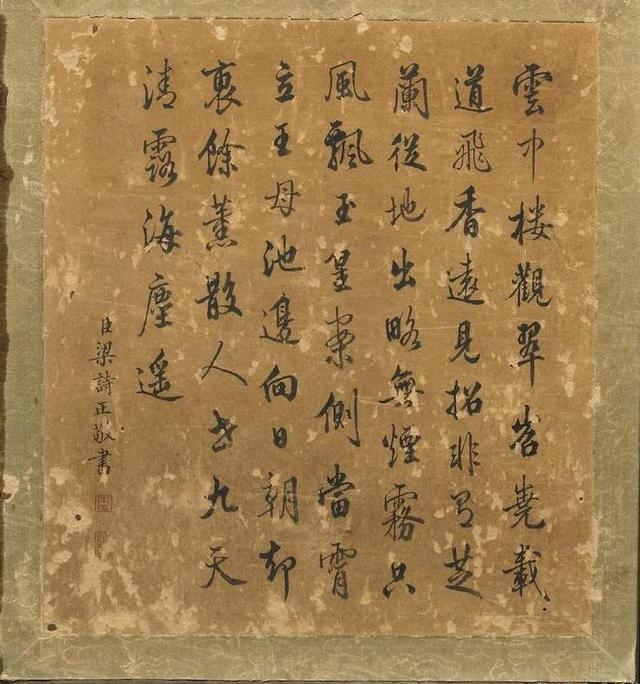 雲中樓觀翠岧嶤載
道飛香遠見招非有芝
蘭從地出略無煙霧只
風飄玉皇案側當霄
立王母池邊向日朝却
裛餘薰散人世九天
清露海塵遥
臣梁詩正敬書